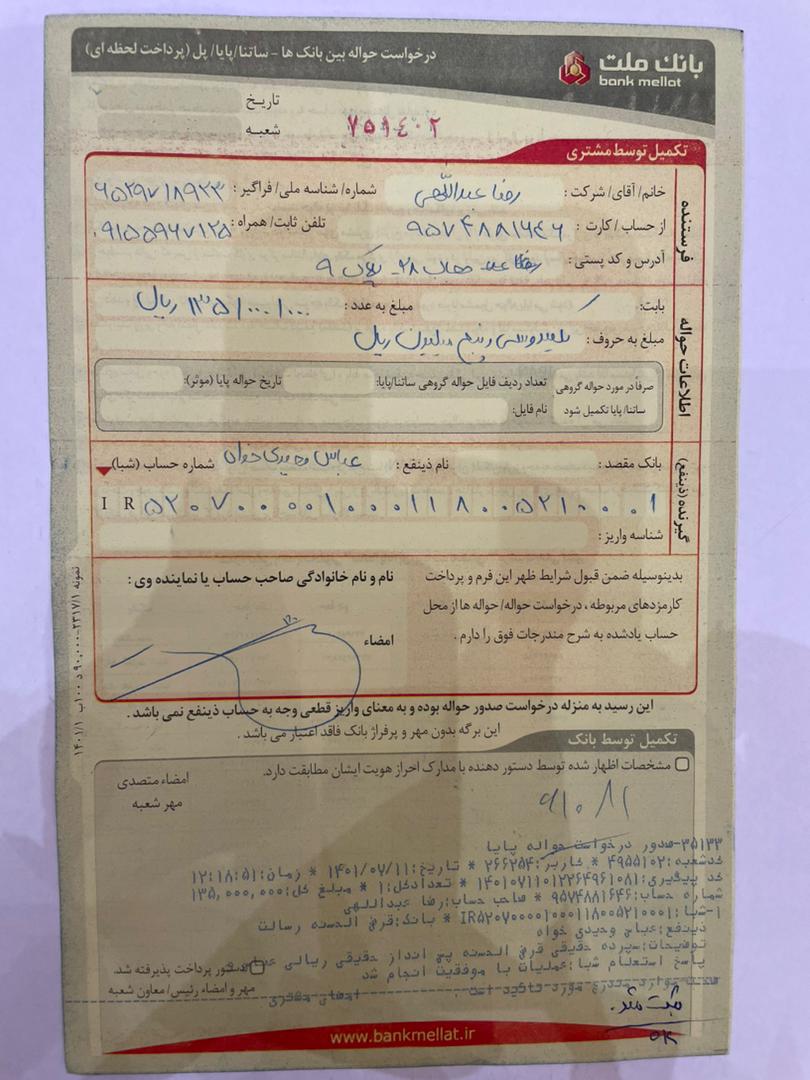 درخواست حواله بین بانک ها - ساتنا/پایا/ پل (پرداخت لحظه ای)
بانک ملت
bank mellat
تاریخ
شعبه
۷۵۱٤۰۲
تکمیل توسط مشتری
فرستنده
خانم/ آقای/ شرکت : رضا عبداللهی شماره/ شناسه ملی/ فراگیر : ۶۵۲۹۷۱۸۹۳۳
از حساب /کارت : ۹۵۷۴۸۸۱۶۴۶ تلفن ثابت/ همراه : ۰۹۱۵۵۹۶۷۱۲۵
آدرس و کد پستی : ۲۸- پلاک ۹
اطلاعات حواله
بابت: مبلغ به عدد : ۱۳۵/۰۰۰/۰۰۰ ریال
مبلغ به حروف : یکصد و سی و پنج میلیون ریال
صرفاً در مورد حواله گروهی ساتنا/ پایا تکمیل شود
تعداد ردیف فایل حواله گروهی ساتنا/پایا: تاریخ حواله پایا (موثر):
نام فایل:
گیرنده (ذینفع)
بانک مقصد : نام ذینفع : عباس وحیدی خواه شماره حساب (شبا)
I R ۵۲۰۷۰۰۰۰۱۰۰۰۱۱۸۰۰۵۲۱۰۰۰۱
شناسه واریز :
بدینوسیله ضمن قبول شرایط ظهر این فرم و پرداخت
کارمزدهای مربوطه ، درخواست حواله/ حواله ها از محل
حساب یادشده به شرح مندرجات فوق را دارم .
نام و نام خانوادگی صاحب حساب یا نماینده وی :
امضاء
نمونه ۲۳۱۷/۱-۹۰،۰۰۰ د ۱۰۰ ب ۱۴۰۱/۱
این رسید به منزله درخواست صدور حواله بوده و به معنای واریز قطعی وجه به حساب ذینفع نمی باشد .
این برگه بدون مهر و پرفراژ بانک فاقد اعتبار می باشد .
تکمیل توسط بانک
مشخصات اظهار شده توسط دستور دهنده با مدارک احراز هویت ایشان مطابقت دارد.
امضاء متصدی
مهر شعبه
۳۵۱۳۳-صدور درخواست حواله پایا
کدشعبه:۴۹۵۵۱۰۲ * کاربر:۲۶۶۲۵۴ * تاریخ:۱۴۰۱/۰۷/۱۱ * زمان:۱۲:۱۸:۵۱
کد پیگیری:۱۴۰۱۰۷۱۱۰۱۲۲۶۴۹۶۱۰۸۱ * تعدادکل:۱ * مبلغ کل:۱۳۵,۰۰۰,۰۰۰
شماره حساب:۹۵۷۴۸۸۱۶۴۶ * صاحب حساب:رضا عبداللهی
۱-شبا:IR۵۲۰۷۰۰۰۰۱۰۰۰۱۱۸۰۰۵۲۱۰۰۰۱ * بانک:قرض الحسنه رسالت
ذینفع:عباس وحیدی خواه
توضیحات:سپرده حقیقی قرض الحسنه پس انداز حقیقی ریالی
پاسخ استعلام شبا:عملیات با موفقیت انجام شد
دستور پرداخت پذیرفته شد.
مهر و امضاء رئیس/ معاون شعبه
ثبت شد.
www.bankmellat.ir